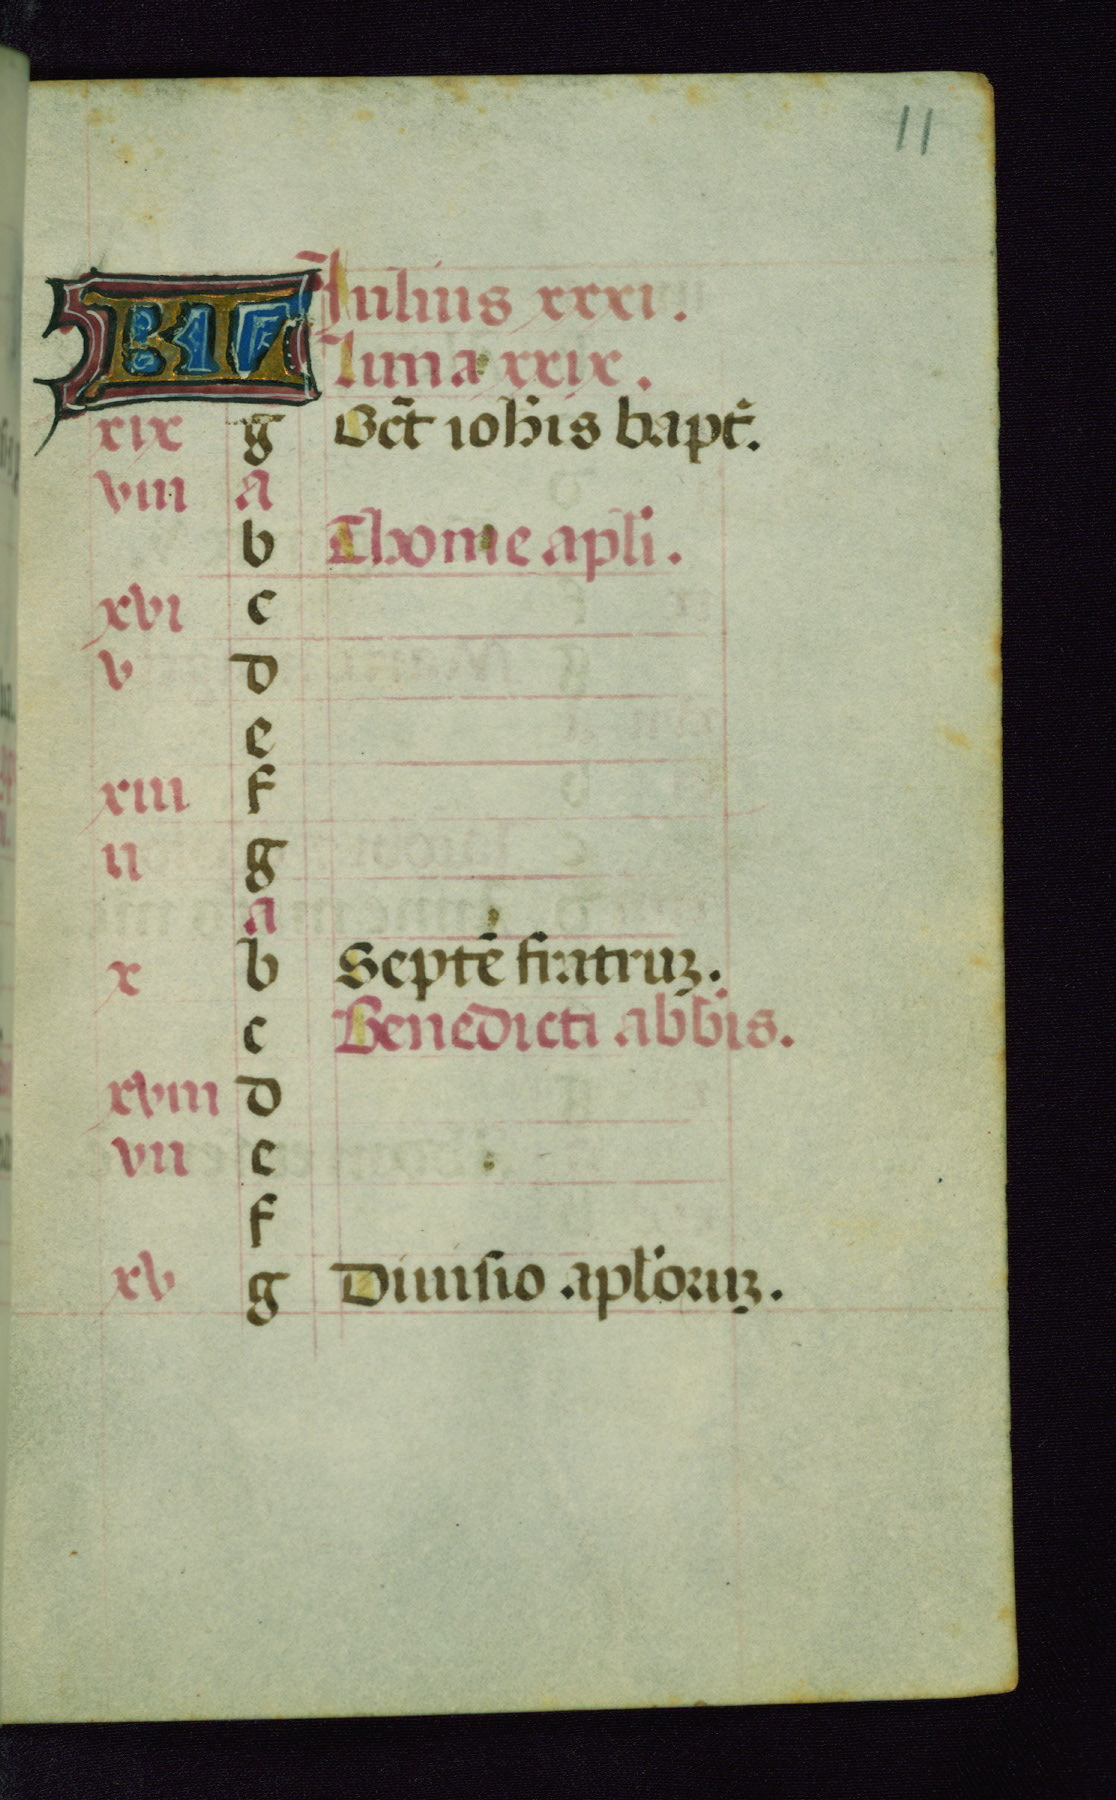 11
KL Julius xxxi.
luna xxix.
xix g Oct̄ ioh̄is bapt̄.
viii a
b Thome apl̄i.
xvi c
v d
e
xiii f
ii g
a
x b Septē fratruꝫ.
c Benedicti abb̄is.
xviii d
vii e
f
xv g Diuisio apl̄oruꝫ.